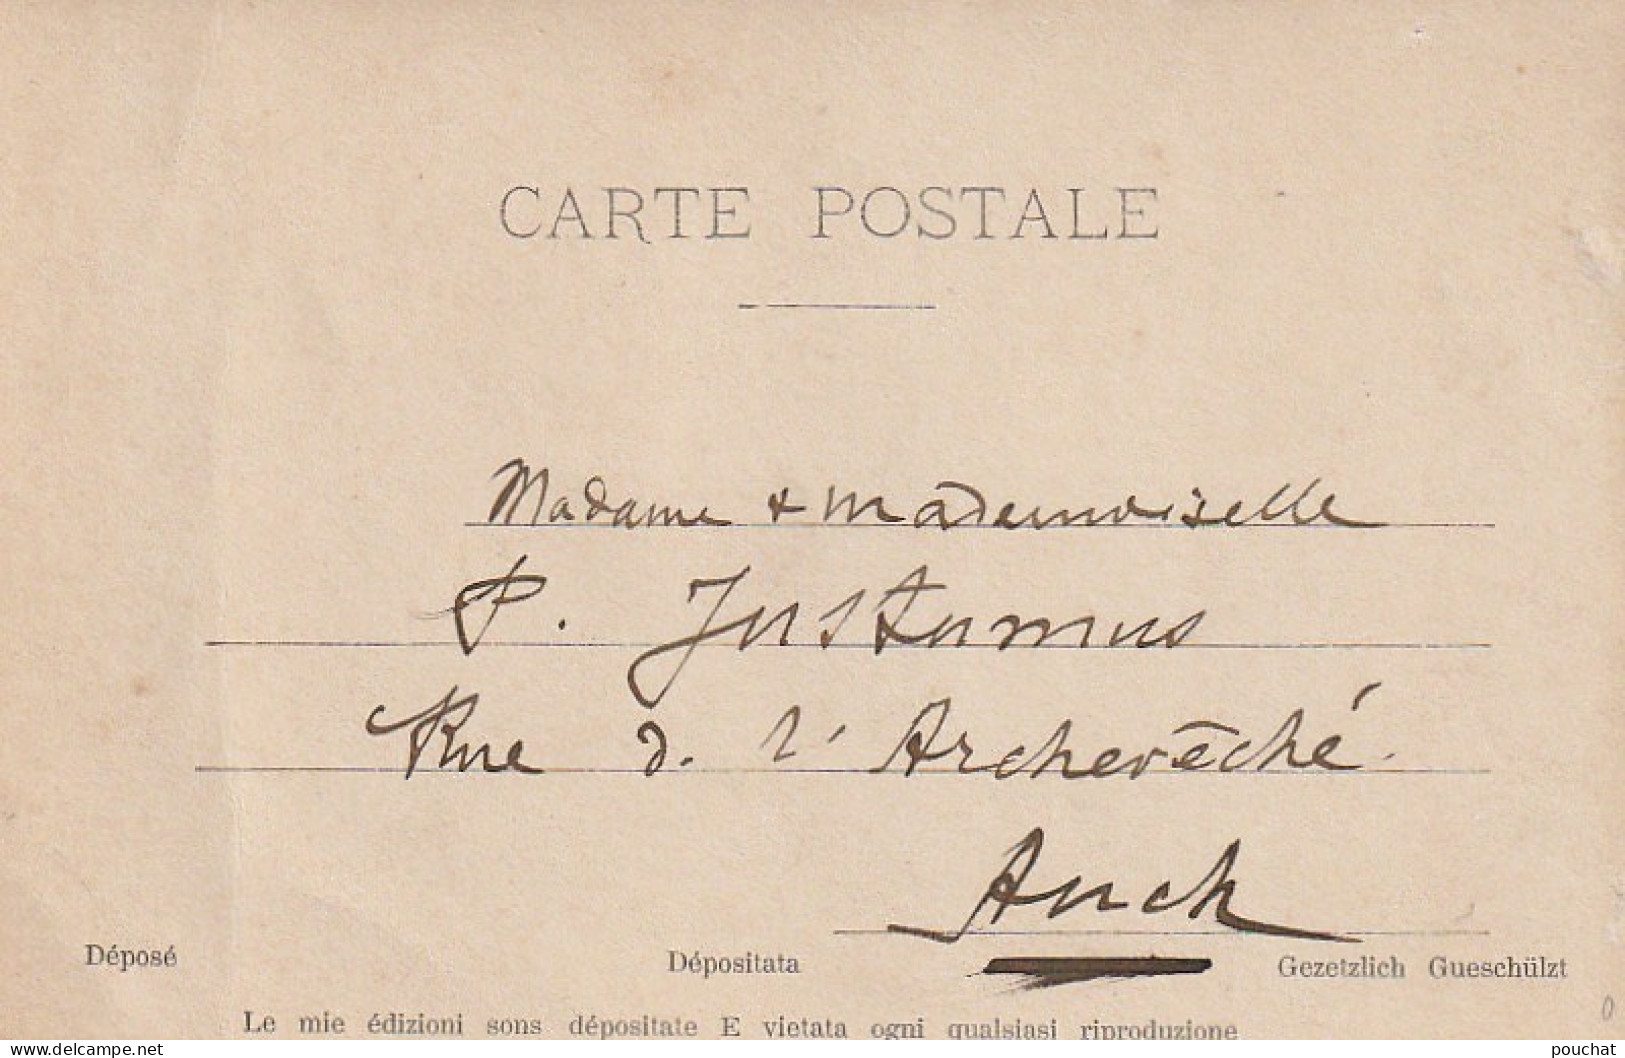 CARTE POSTALE
Madame & Mademoiselle
P. Justamus
Rue d. l'Archevêché.
Auch
Déposé Dépositata Gezetzlich Gueschülzt
Le mie édizioni sons dépositate E vietata ogni qualsiasi riproduzione
www.delcampe.net pouchat